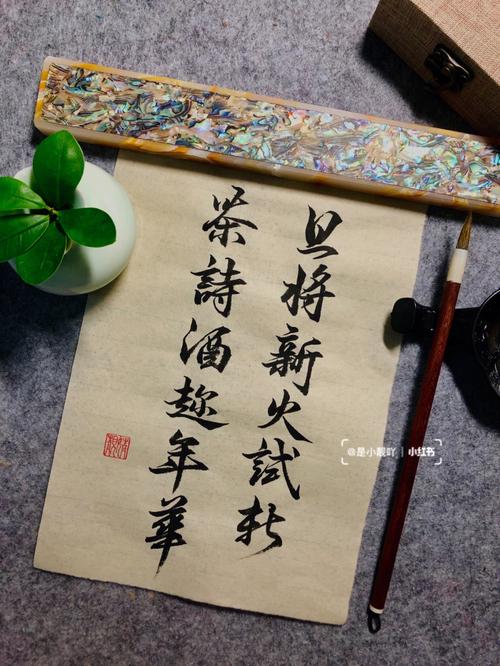 且將新火試新
茶詩酒趁年華
@是小靓吖｜小红书